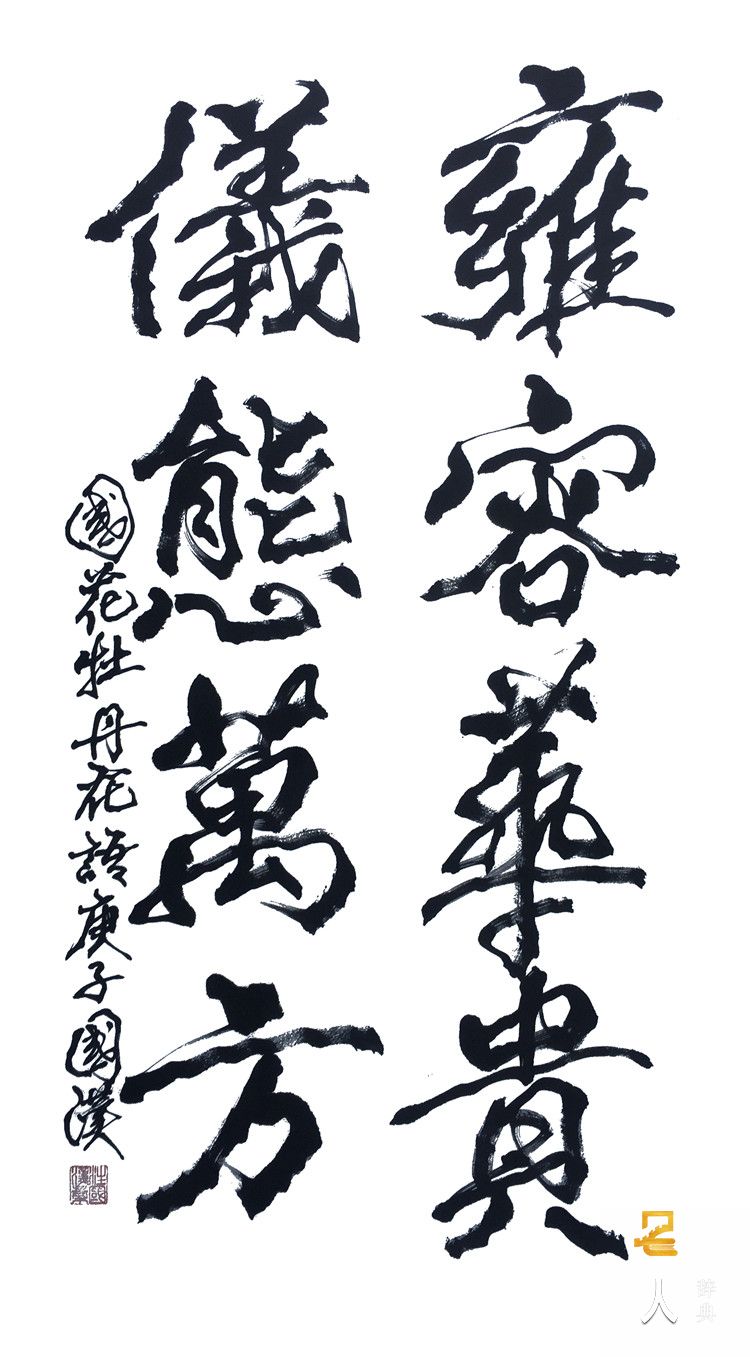 雍容華貴
儀態萬方
國花牡丹花語庚子國漢
人
辞典